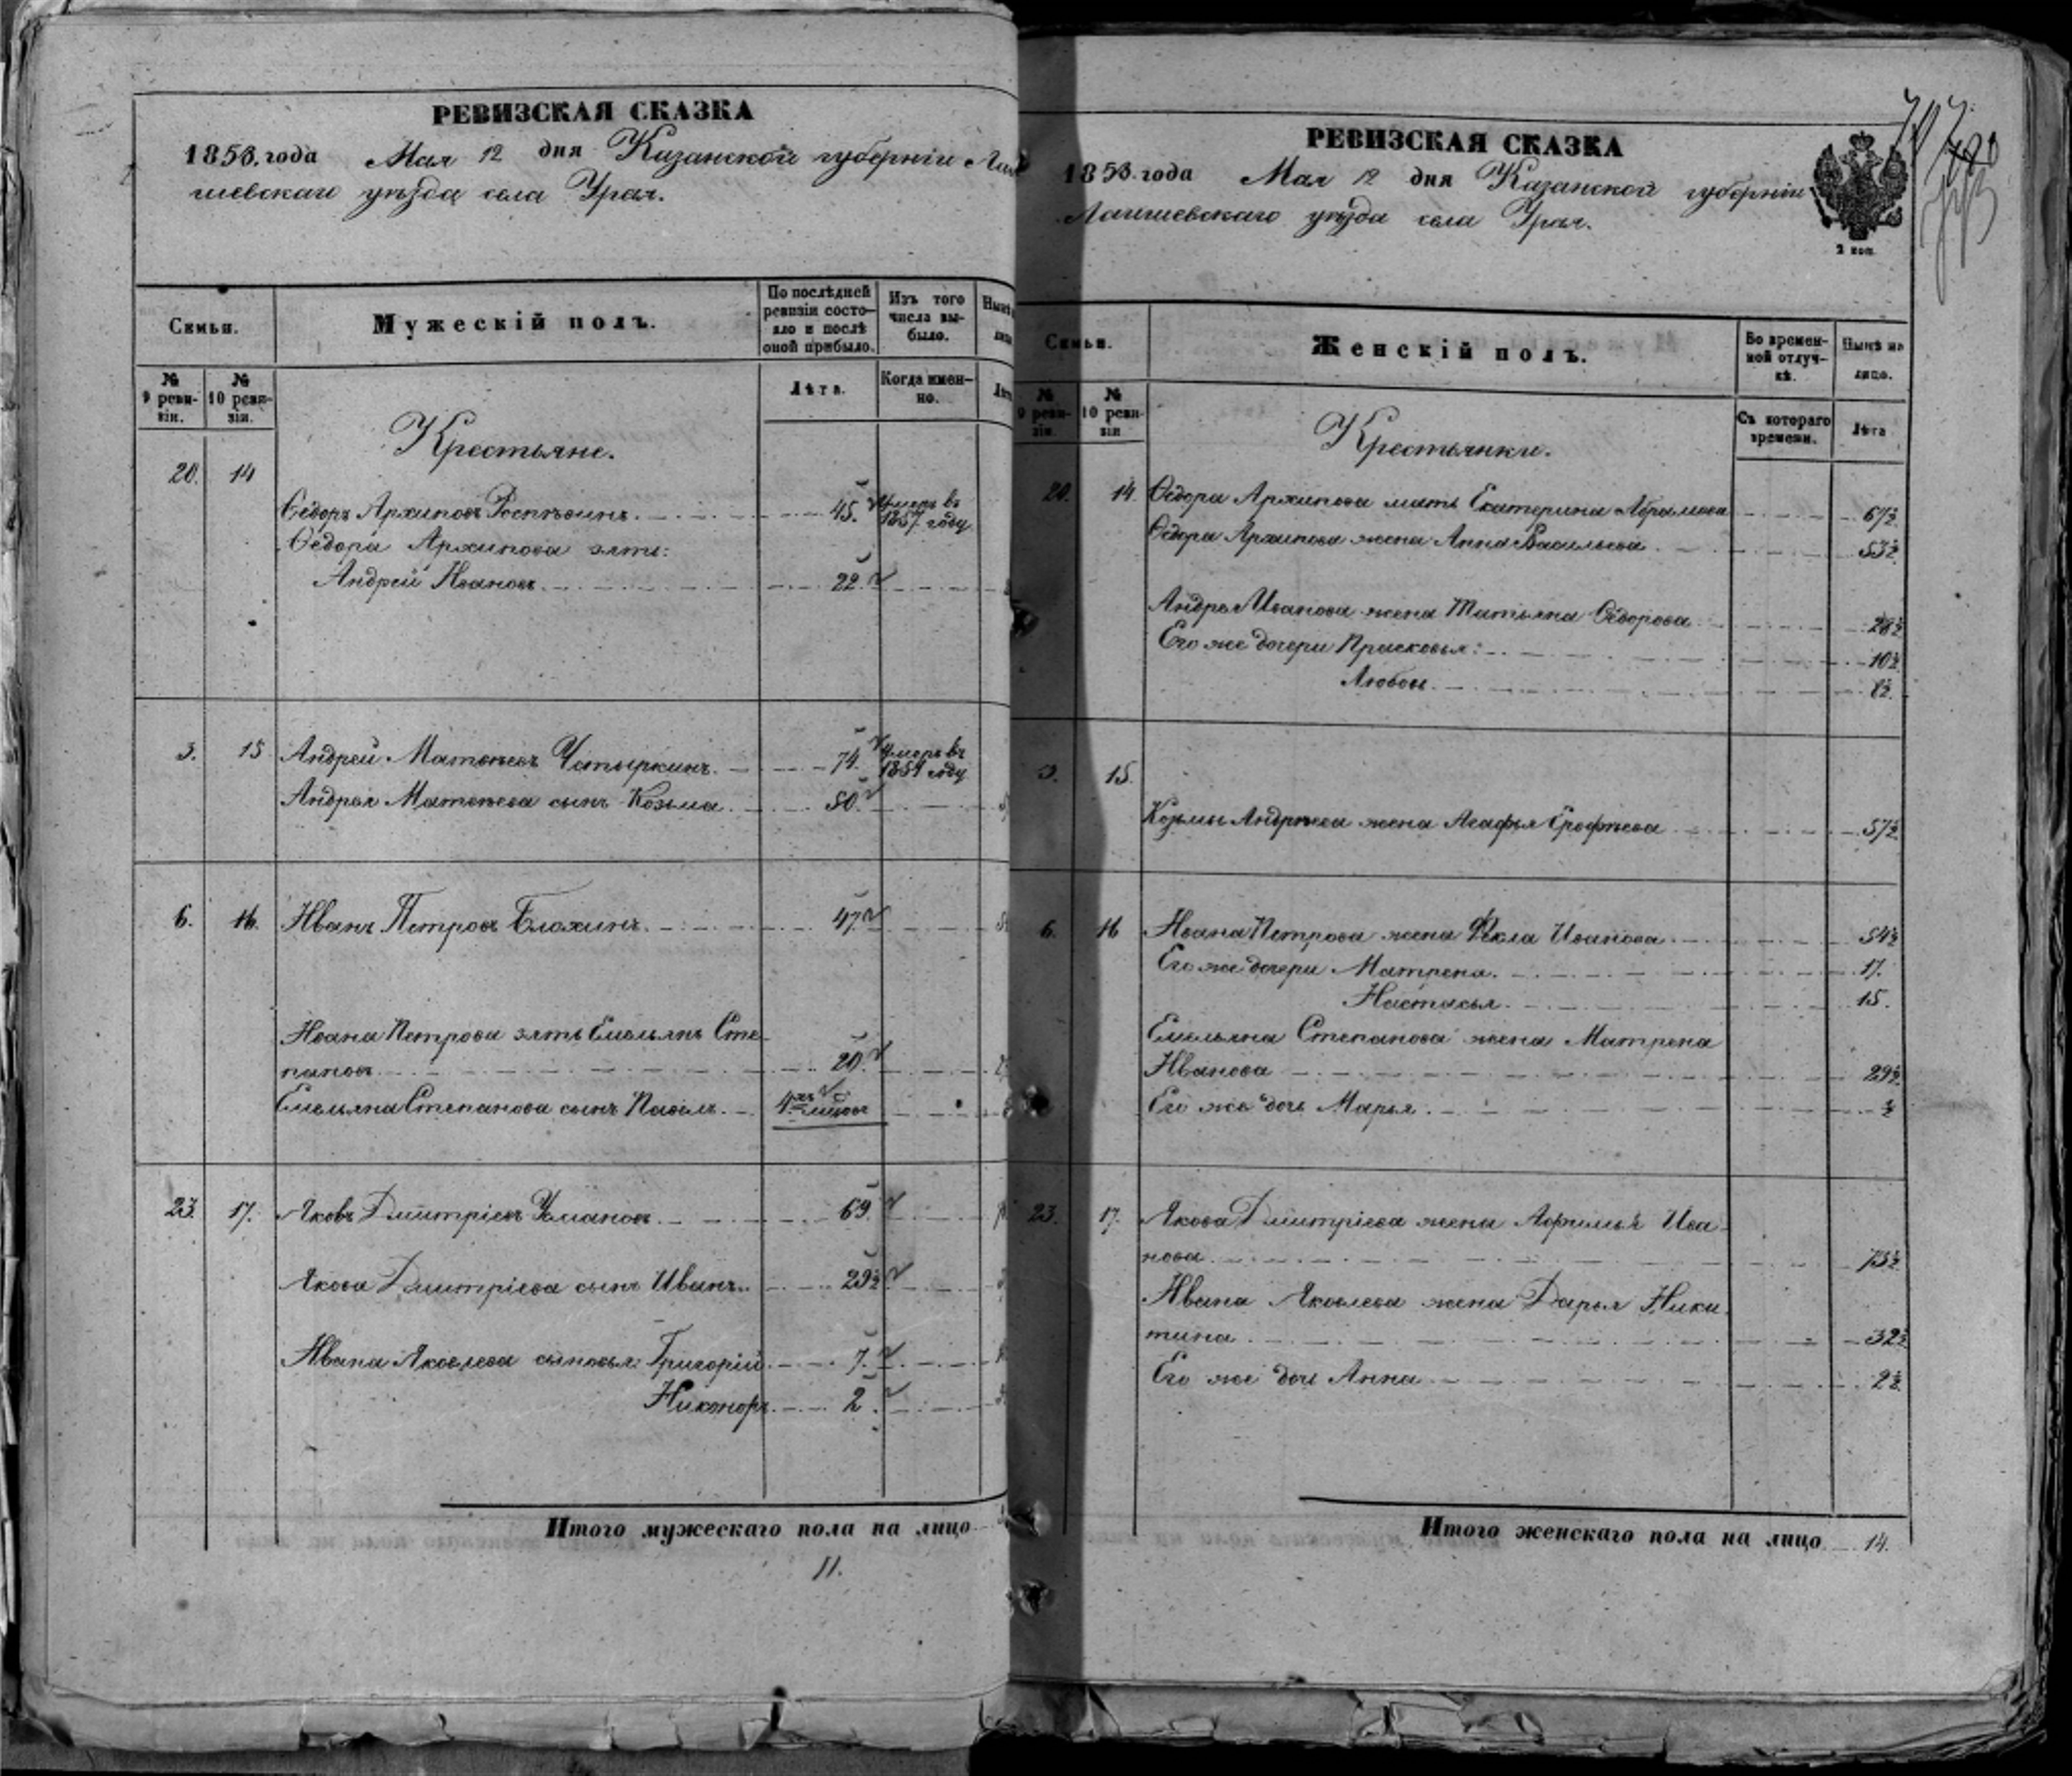 РЕВИЗСКАЯ СКАЗКА
1858. года Мая 12 дня Казанской губерніи Лаи
шевскаго уѣзда села Урая.
Семьи.
Мужескій полъ.
По послѣдней ревизіи состояло и послѣ оной прибыло.
Изъ того числа выбыло.
№ 9 ревизіи.
№ 10 ревизіи.
Лѣта.
Когда именно.
Крестьяне.
20. 14
Ѳедоръ Архиповъ 45. Умеръ въ 1857 году
Ѳедора Архипова зять:
Андрей Ивановъ 22.
3. 15 Андрей Матвѣевъ Чатыркинъ 74. Умеръ въ 1851 году
Андрея Матвѣева сынъ Козьма 50.
6. 16. Иванъ Петровъ Блохинъ 47.
Ивана Петрова зять Емельянъ Сте
пановъ 20.
Емельяна Степанова сынъ Павелъ
23. 17. Яковъ Дмитріевъ 69.
Якова Дмитріева сынъ Иванъ 29½
Ивана Яковлева сыновья: Григорій 7.
Никторъ 2.
Итого мужескаго пола на лицо
11.
РЕВИЗСКАЯ СКАЗКА
1858. года Мая 12 дня Казанской губерніи
Лаишевскаго уѣзда села Урая.
2 коп.
Семьи.
Женскій полъ.
Во временной отлучкѣ.
Нынѣ на лицо.
№ 9 ревизіи.
№ 10 ревизіи
Съ котораго времени.
Лѣта
Крестьянки.
20. 14. Ѳедора Архипова мать Екатерина Абрамова 67½
Ѳедора Архипова жена Анна Васильева 53½
Андрея Иванова жена Татьяна Ѳедорова 28½
Его же дочери Прасковья: 10½
Любовь 8½
3. 15.
Козьмы Андрѣева жена Агафья Ерофѣева 57½
6. 16 Ивана Петрова жена Ѳекла Иванова 54½
Его же дочери Матрена 17.
Настасья 15.
Емельяна Степанова жена Матрена
Иванова 29½
Его же дочь Марья ½
23. 17. Якова Дмитріева жена Афимья Ива
нова 73½
Ивана Яковлева жена Дарья Ники
тина 32½
Его же дочь Анна 2½
Итого женскаго пола на лицо 14.